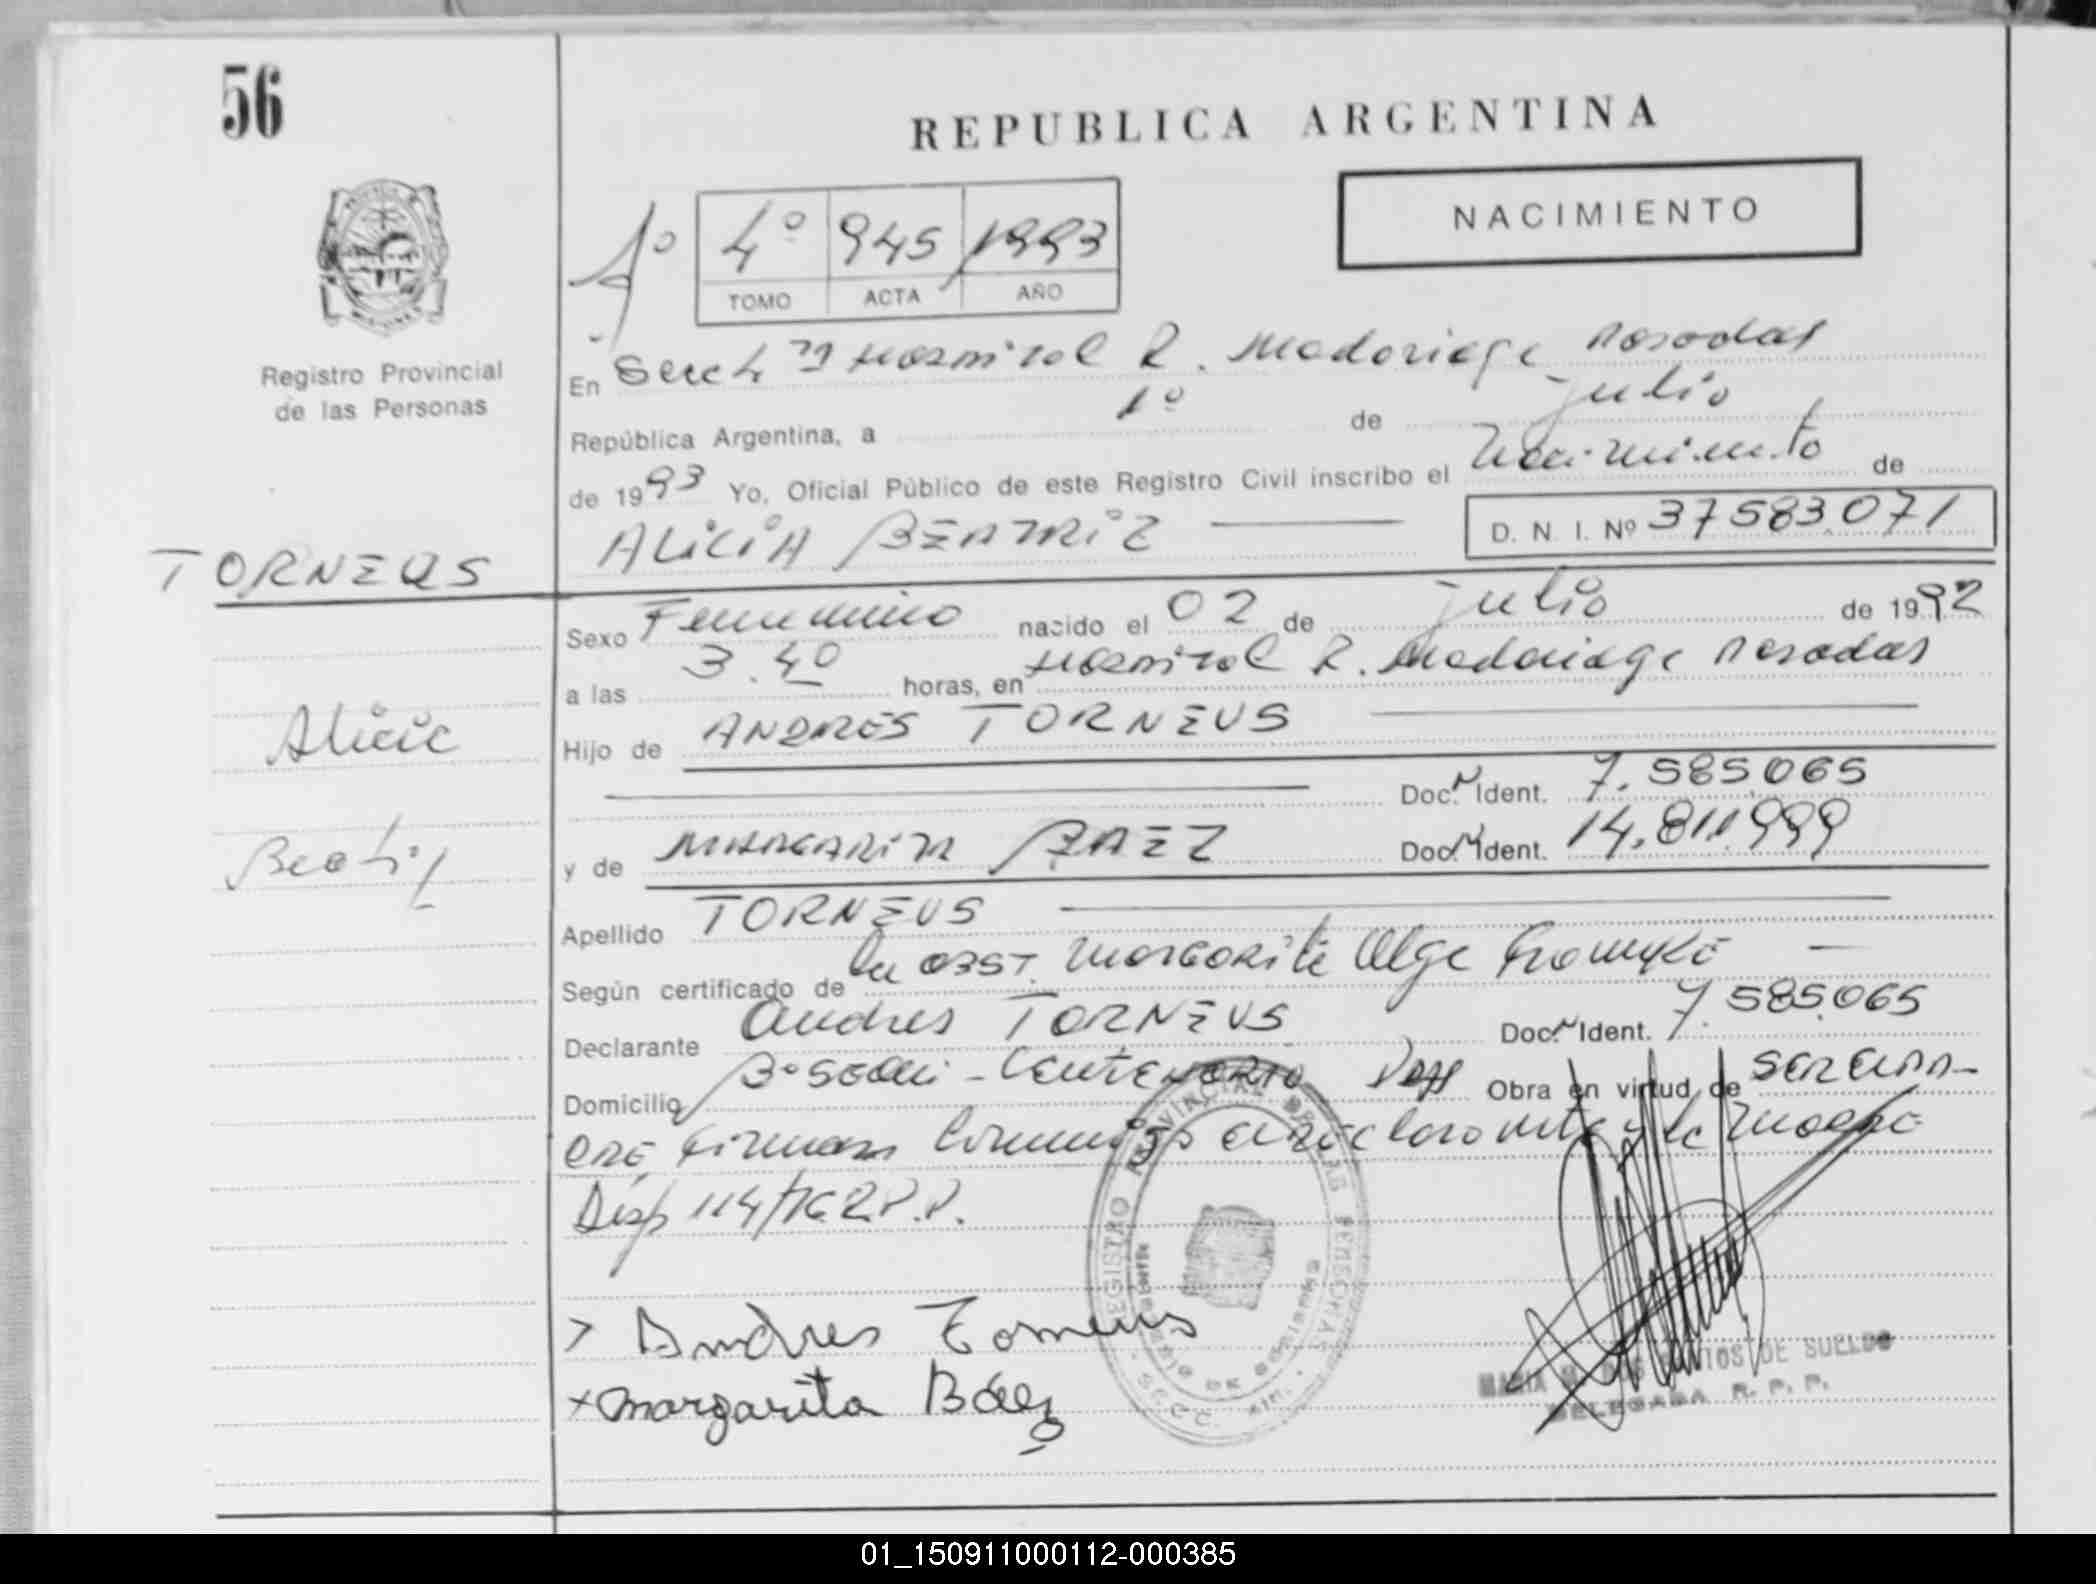 56
REPUBLICA ARGENTINA
NACIMIENTO
1º 4º 945 1993
TOMO ACTA AÑO
Registro Provincial
de las Personas
En Secc Hospital R. Madariaga Posadas
República Argentina, a 1º de Julio
de 1993 Yo, Oficial Público de este Registro Civil inscribo el Nacimiento de
ALICIA BEATRIZ D. N. I. Nº 37583.071
TORNEUS
Sexo Femenino nacido el 02 de Julio de 1992
a las 3.40 horas, en Hospital R. Madariaga Posadas
Alicia
Hijo de ANDRES TORNEUS
Doc. Ident. 7.585.065
Beatriz
y de MARGARITA BAEZ Doc. Ident. 14.811.999
Apellido TORNEUS
Según certificado de la OBST. Margarita Olga
Declarante Andres TORNEUS Doc. Ident. 7.585.065
Domicilio Bº Centenario Obra en virtud de
firman la madre
Disp 114/76 R.P.P.
> Andres Torneus
x margarita Báez
REGISTRO PROVINCIAL DE LAS PERSONAS
DE SUELDO
DELEGADA R. P. P.
01_150911000112-000385